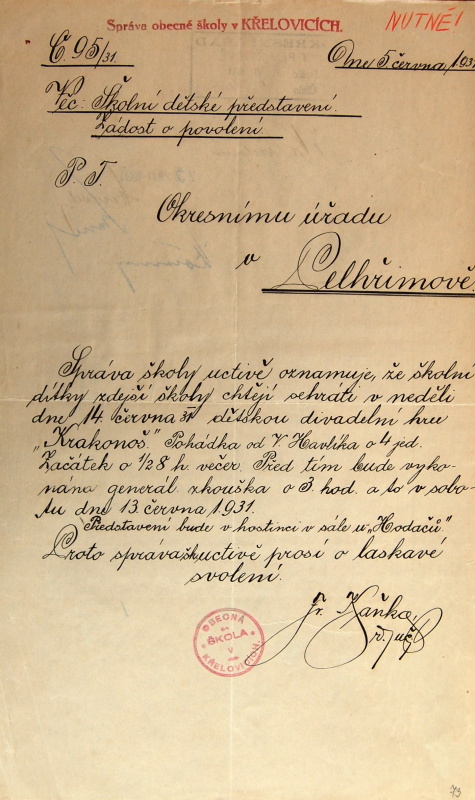 Správa obecné školy v KŘELOVICÍCH.
NUTNÉ!
Č. 95/31
Dne 5 června 1931
Věc: Školní dětské představení.
Žádost o povolení.
P. T.
Okresnímu úřadu
v Pelhřimově.
Správa školy uctivě oznamuje, že školní
dítky zdejší školy chtějí sehráti v neděli
dne 14. června 31 dětskou divadelní hru
„Krakonoš." Pohádka od V. Havlíka o 4 jed.
Začátek o 1/28 h. večer. Před tím bude vyko-
nána generál. zkouška o 3. hod. a to v sobo-
tu dne 13. června 1931.
Představení bude v hostinci v sále u „Hodačů".
Proto správa šk. uctivě prosí o laskavé
svolení.
Fr. Kaňka,
OBECNÁ
ŠKOLA
V
KŘELOVICÍCH.
73